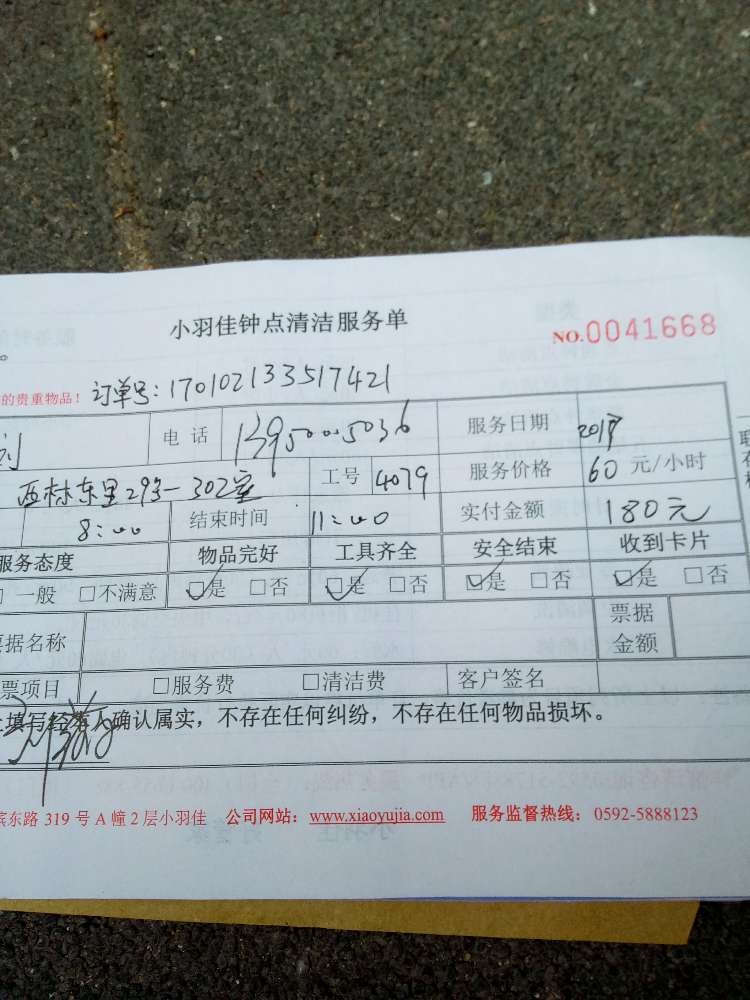 小羽佳钟点清洁服务单
NO.0041668
。
的贵重物品！ 订单号:170102133517421
电话 13950005036 服务日期
西林东里293-302室 工号 4079 服务价格 60 元/小时
8:00 结束时间 11:00 实付金额 180元
服务态度 物品完好 工具齐全 安全结束 收到卡片
□一般 □不满意 ☑是 □否 ☑是 □否 ☑是 □否 ☑是 □否
票据名称 票据金额
票项目 □服务费 □清洁费 客户签名
上填写经客人确认属实，不存在任何纠纷，不存在任何物品损坏。
滨东路 319 号 A 幢 2 层小羽佳 公司网站：www.xiaoyujia.com 服务监督热线：0592-5888123